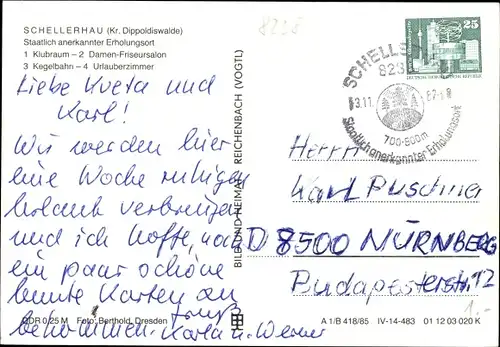 SCHELLERHAU (Kr. Dippoldiswalde)
Staatlich anerkannter Erholungsort
1 Klubraum – 2 Damen-Friseursalon
3 Kegelbahn – 4 Urlauberzimmer
Liebe Kveta und
Karl!
Wir werden hier
eine Woche ruhigen
Urlaub verbringen
und ich hoffe, noch
ein paar schöne
bunte Karten zu
bekommen. Gruß
Karla u. Werner
DDR 0,25 M Foto: Berthold, Dresden
BILD UND HEIMAT REICHENBACH (VOGTL)
8238
25
SCHELLERHAU
8231
700-800m
Staatlich anerkannter Erholungsort
Herrn
Karl Puschner
D 8500 NÜRNBERG
Budapesterstr. 12
1.-
A 1/B 418/85 IV-14-483 01 12 03 020 K